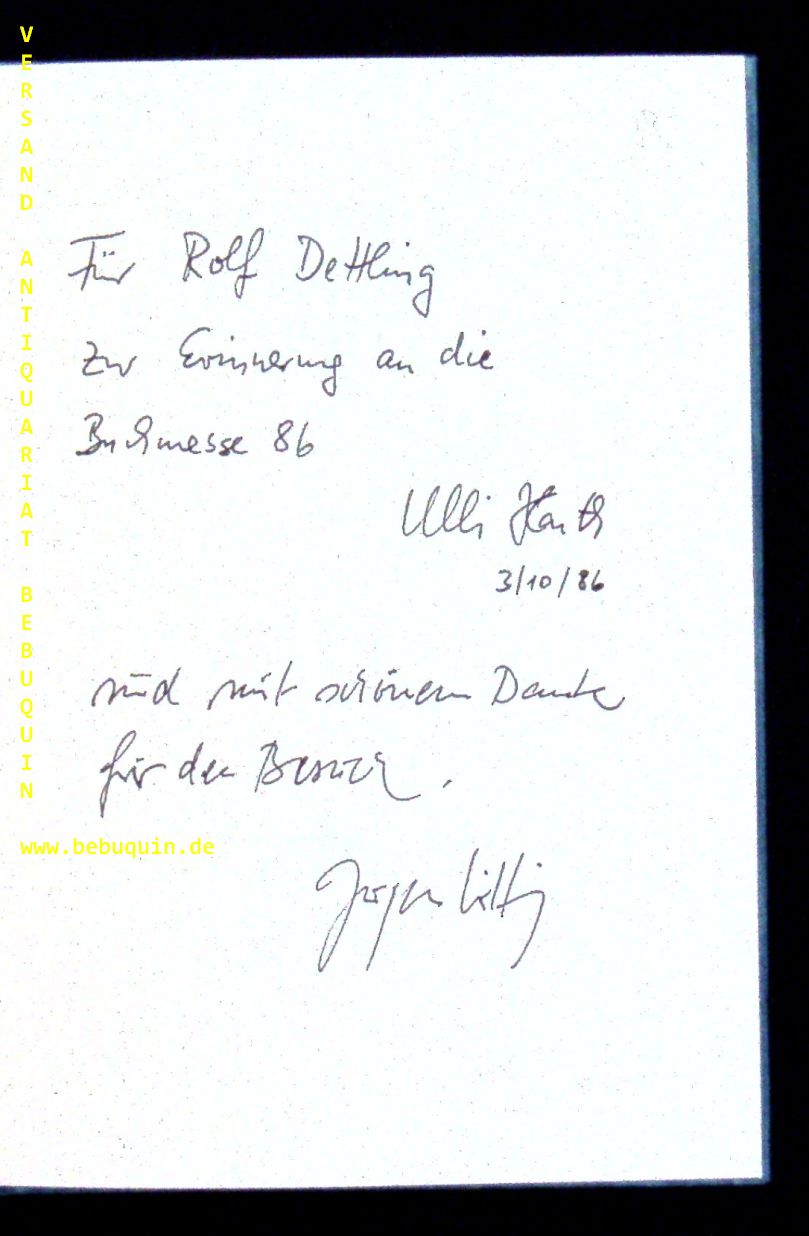 VERSAND ANTIQUARIAT BEBUQUIN
Für Rolf Dettling
zur Erinnerung an die
Buchmesse 86
Ulli Harth
3/10/86
und mit schönem Danke
für den Besuch.
Jürgen
www.bebuquin.de